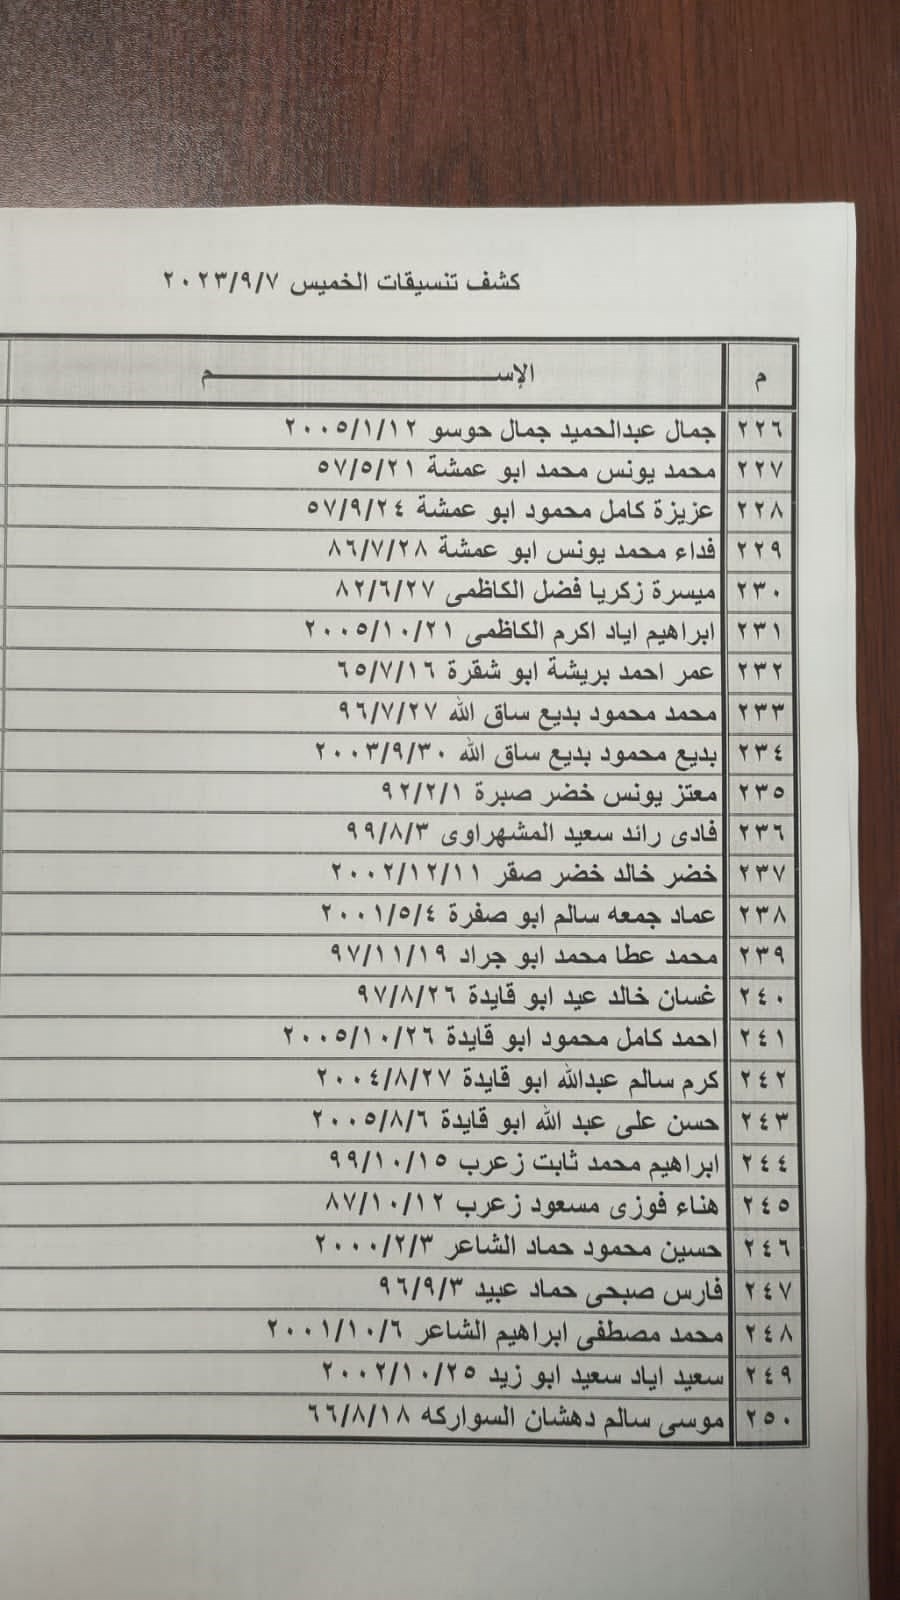 كشف تنسيقات الخميس ٢٠٢٣/٩/٧
م الإســـــــــــــــم
٢٢٦ جمال عبدالحميد جمال حوسو ٢٠٠٥/١/١٢
٢٢٧ محمد يونس محمد ابو عمشة ٥٧/٥/٢١
٢٢٨ عزيزة كامل محمود ابو عمشة ٥٧/٩/٢٤
٢٢٩ فداء محمد يونس ابو عمشة ٨٦/٧/٢٨
٢٣٠ ميسرة زكريا فضل الكاظمى ٨٢/٦/٢٧
٢٣١ ابراهيم اياد اكرم الكاظمى ٢٠٠٥/١٠/٢١
٢٣٢ عمر احمد بريشة ابو شقرة ٦٥/٧/١٦
٢٣٣ محمد محمود بديع ساق الله ٩٦/٧/٢٧
٢٣٤ بديع محمود بديع ساق الله ٢٠٠٣/٩/٣٠
٢٣٥ معتز يونس خضر صبرة ٩٢/٢/١
٢٣٦ فادى رائد سعيد المشهراوى ٩٩/٨/٣
٢٣٧ خضر خالد خضر صقر ٢٠٠٢/١٢/١١
٢٣٨ عماد جمعه سالم ابو صفرة ٢٠٠١/٥/٤
٢٣٩ محمد عطا محمد ابو جراد ٩٧/١١/١٩
٢٤٠ غسان خالد عيد ابو قايدة ٩٧/٨/٢٦
٢٤١ احمد كامل محمود ابو قايدة ٢٠٠٥/١٠/٢٦
٢٤٢ كرم سالم عبدالله ابو قايدة ٢٠٠٤/٨/٢٧
٢٤٣ حسن على عبد الله ابو قايدة ٢٠٠٥/٨/٦
٢٤٤ ابراهيم محمد ثابت زعرب ٩٩/١٠/١٥
٢٤٥ هناء فوزى مسعود زعرب ٨٧/١٠/١٢
٢٤٦ حسين محمود حماد الشاعر ٢٠٠٠/٢/٣
٢٤٧ فارس صبحى حماد عبيد ٩٦/٩/٣
٢٤٨ محمد مصطفى ابراهيم الشاعر ٢٠٠١/١٠/٦
٢٤٩ سعيد اياد سعيد ابو زيد ٢٠٠٢/١٠/٢٥
٢٥٠ موسى سالم دهشان السواركه ٦٦/٨/١٨